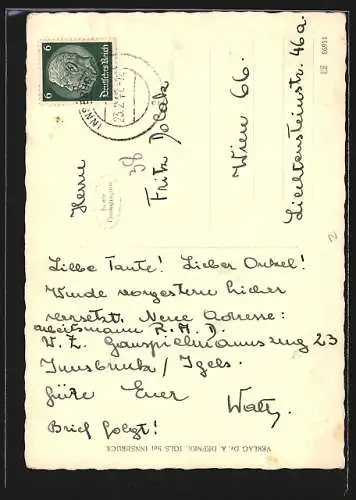 6 Deutsches Reich 6
INNS
23.2.
Herrn
Fritz Dolak
38
Wien 66.
Liechtensteinstr. 46a.
Echte
Photographie
Liebe Tante! Lieber Onkel!
Wurde vorgestern hieher
versetzt. Neue Adresse:
Arbeitsmann R.A.D.
V.Z. Gauspielmannszug 23
Innsbruck / Igels.
Grüße Euer
Brief folgt!
VERLAG Dr. A. DEFNER, IGLS bei INNSBRUCK